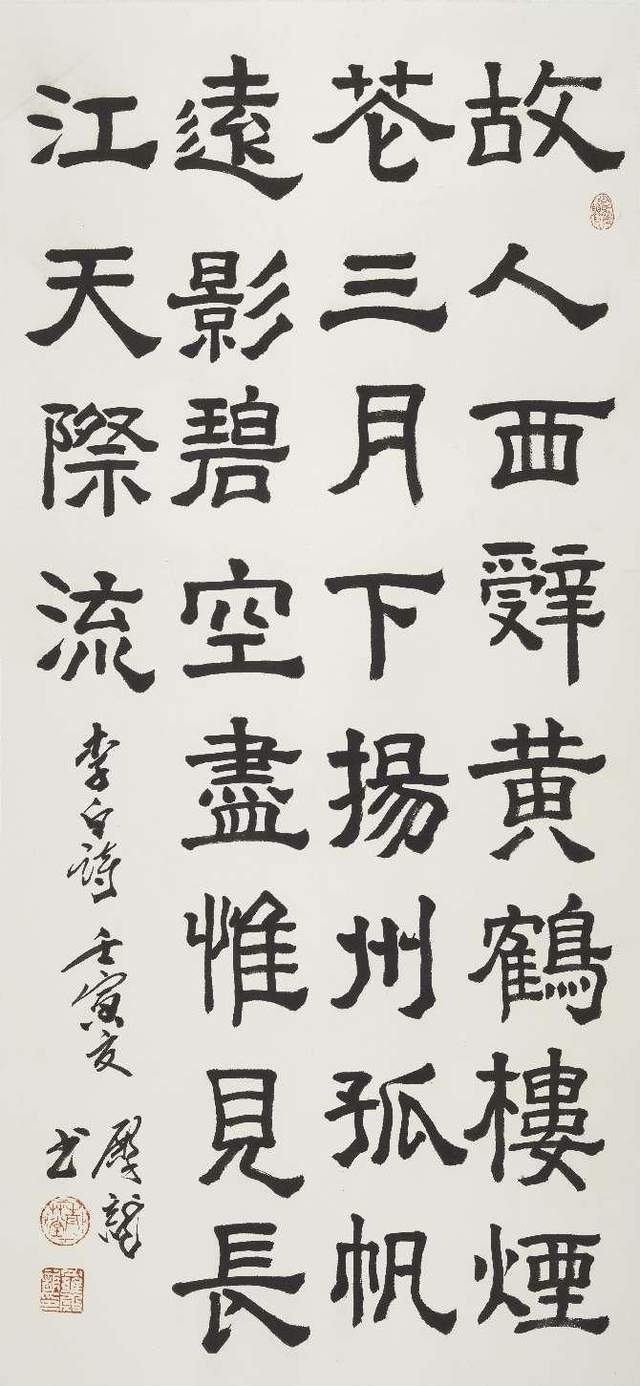 故人西辭黄鶴樓煙
花三月下揚州孤帆
遠影碧空盡惟見長
江天際流
李白詩 壬寅夏
书